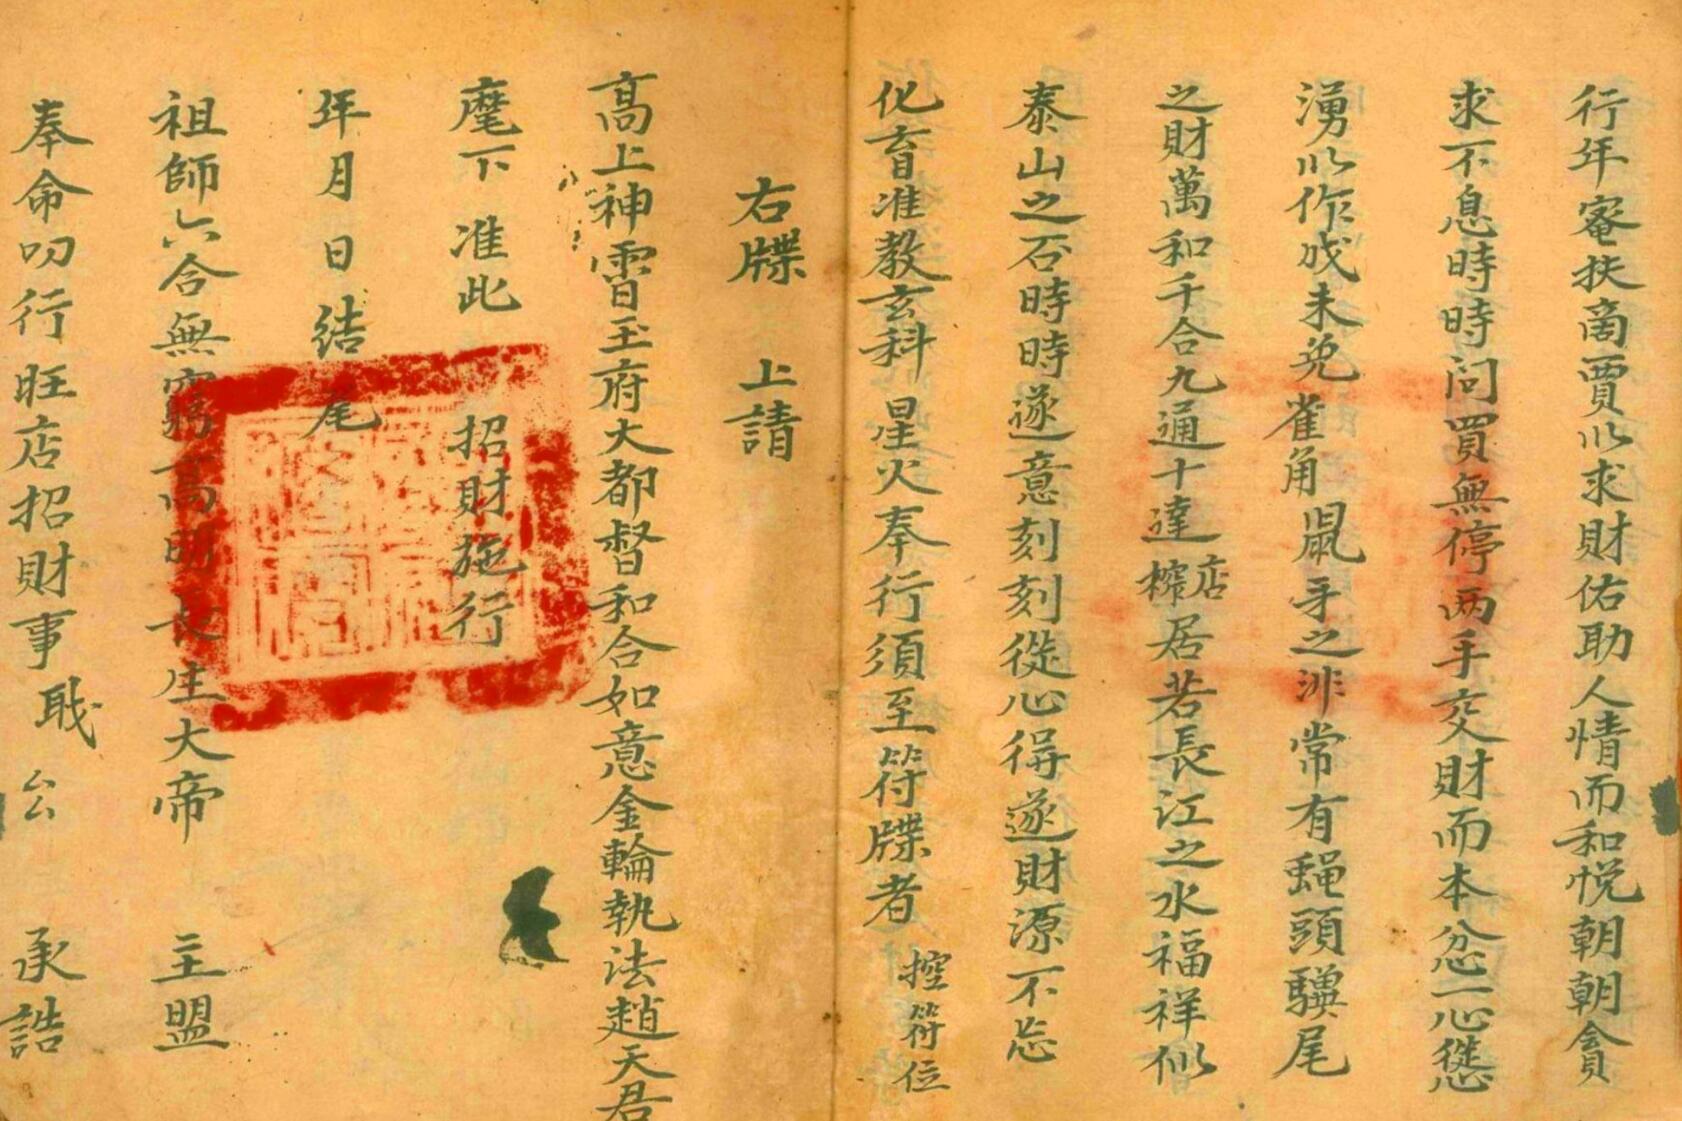 行年寚扶啇賈以求財佑助人情而和悅朝朝貪
求不息時時问買無停两手交財而本忿一心慫
湧以作成未免雀角鼠牙之非常有蝇頭驥尾
之財萬和千合九通十達
榨店
居若長江之水福祥似
泰山之石時時遂意刻刻從心得遂財源不忘
化育准教玄科星火奉行須至符牒者
控符位
右牒 上請
高上神霄玉府大都督和合如意金輪執法趙天君
麾下 准此 招財施行
年月日結尾
祖師六合無窮高明長生大帝 主盟
奉命叨行旺店招財事戢 厶 承誥